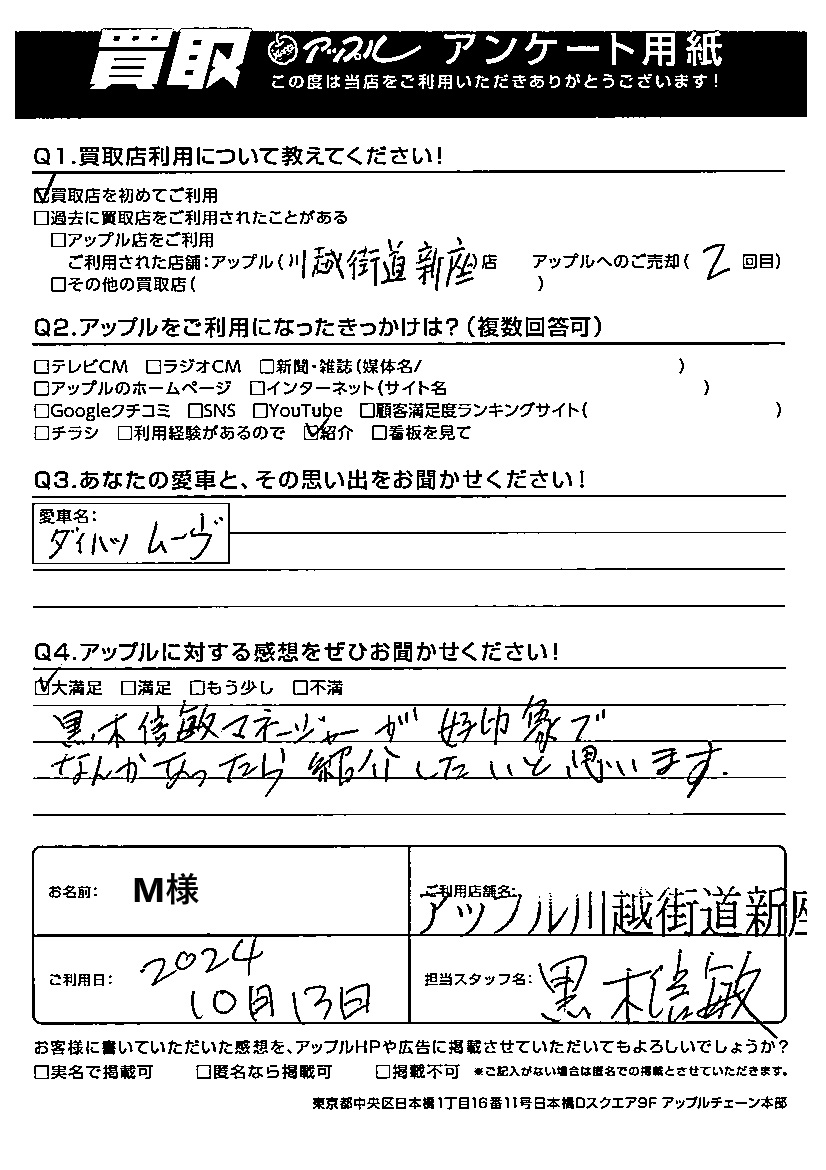 買取 アップル アンケート用紙
この度は当店をご利用いただきありがとうございます!
Q1.買取店利用について教えてください!
☑買取店を初めてご利用
□過去に買取店をご利用されたことがある
□アップル店をご利用
ご利用された店舗:アップル(川越街道新座)店 アップルへのご売却(2回目)
□その他の買取店( )
Q2.アップルをご利用になったきっかけは?(複数回答可)
□テレビCM □ラジオCM □新聞・雑誌(媒体名/ )
□アップルのホームページ □インターネット(サイト名 )
□Googleクチコミ □SNS □YouTube □顧客満足度ランキングサイト( )
□チラシ □利用経験があるので ☑紹介 □看板を見て
Q3.あなたの愛車と、その思い出をお聞かせください!
愛車名:
ダイハツ ムーヴ
Q4.アップルに対する感想をぜひお聞かせください!
☑大満足 □満足 □もう少し □不満
黒木信敏マネージャーが好印象で
なんかあったら紹介したいと思います.
お名前: M様
ご利用店舗名:
アップル川越街道新座
ご利用日: 2024
10月13日
担当スタッフ名: 黒木信敏
お客様に書いていただいた感想を、アップルHPや広告に掲載させていただいてもよろしいでしょうか?
□実名で掲載可 □匿名なら掲載可 □掲載不可 *ご記入がない場合は匿名での掲載とさせていただきます。
東京都中央区日本橋1丁目16番11号日本橋Dスクエア9F アップルチェーン本部